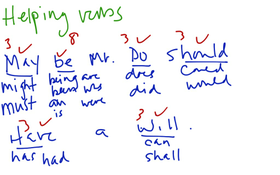 Helping verbs
3 ✓ ✓ 8 3 ✓ 3 ✓
May be Mr. Do should
might being are does could
must been was did would
am were
is
3 ✓ 3 ✓
Have a Will .
has had can
shall